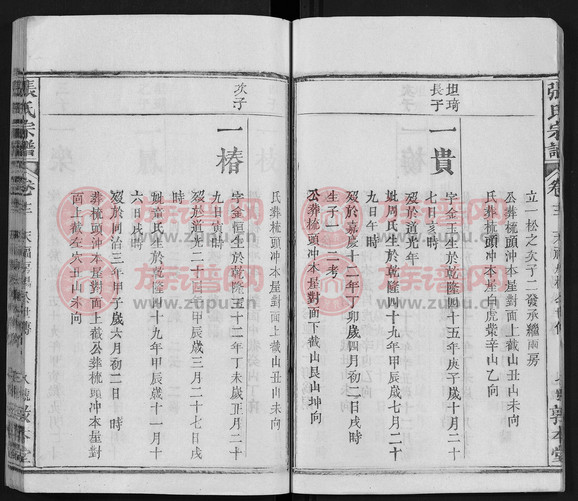 張氏宗譜
卷十三
敦本堂
立一松之次子二發承繼兩房
公葬梳頭沖本屋對面上截山丑山未向
氏葬梳頭沖本屋白虎棠辛山乙向
坦琦
長子
一貴
字金玉生於乾隆四十五年庚子歲十月二十
七日亥時
歿於道光年
媲周氏生於乾隆四十九年甲辰歲七月二十
九日午時
歿於嘉慶十二年丁卯歲四月初二日戌時
生子一二考
公葬梳頭沖本屋對面下截山艮山坤向
氏葬梳頭沖本屋對面上截山丑山未向
次子
一椿
字金恒生於乾隆五十二年丁未歲正月二十
九日寅時
歿於道光二十四年甲辰歲三月二十七日戌
時
媲童氏生於乾隆四十九年甲辰歲十一月十
六日戌時
歿於同治三年甲子歲六月初二日 時
公葬梳頭沖本屋對
面上截左穴丑山未向
張氏宗譜
卷十三
敦本堂
族譜网
www.zupu.cn